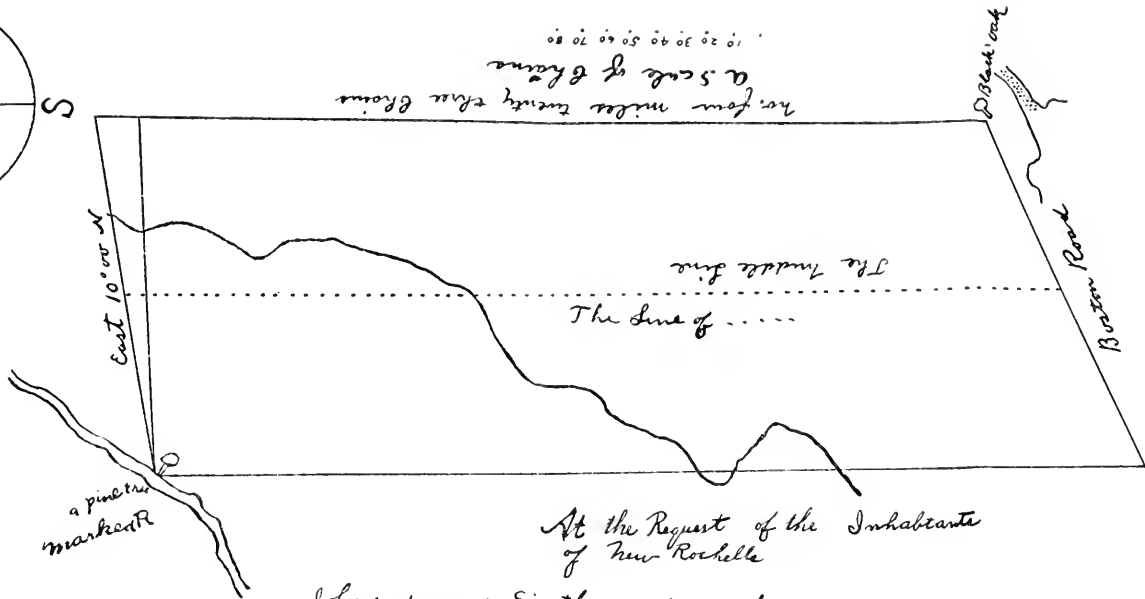 S
. 10 20 30 40 50 60 70 80
a Scale of Chains
no. four miles twenty three Chains
Black oak
Boston Road
East 10°00 N
The middle Line
The Line of ....
a pine tree
marked R
At the Request of the Inhabtants
of New Rochelle